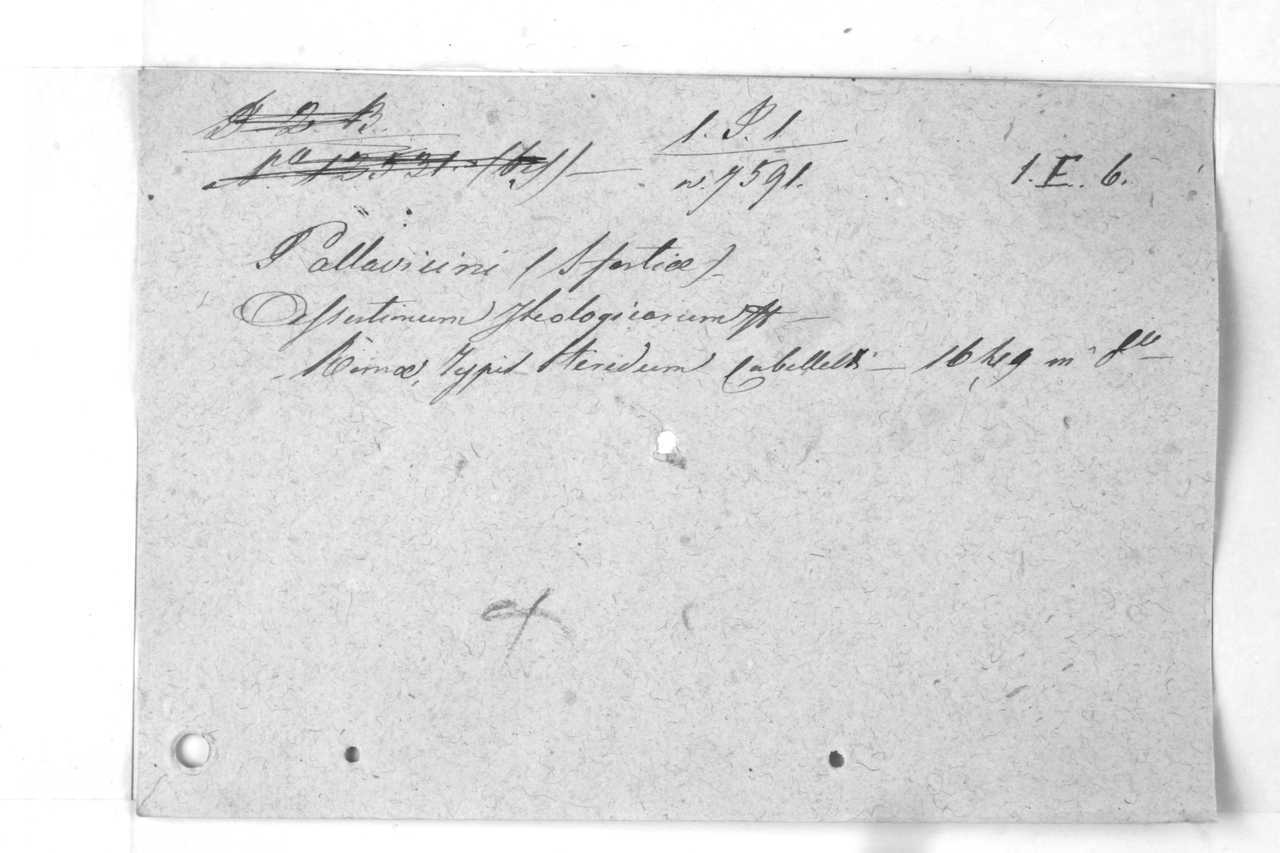 D 2 B.
Nº 12531. (by)
1. P. 1
n. 7591.
1. E. 6.
Pallavicini (Sfortiæ)
Assertionum Theologicarum
Romæ, Typis Heredum Corbelletti 1649 in 8º